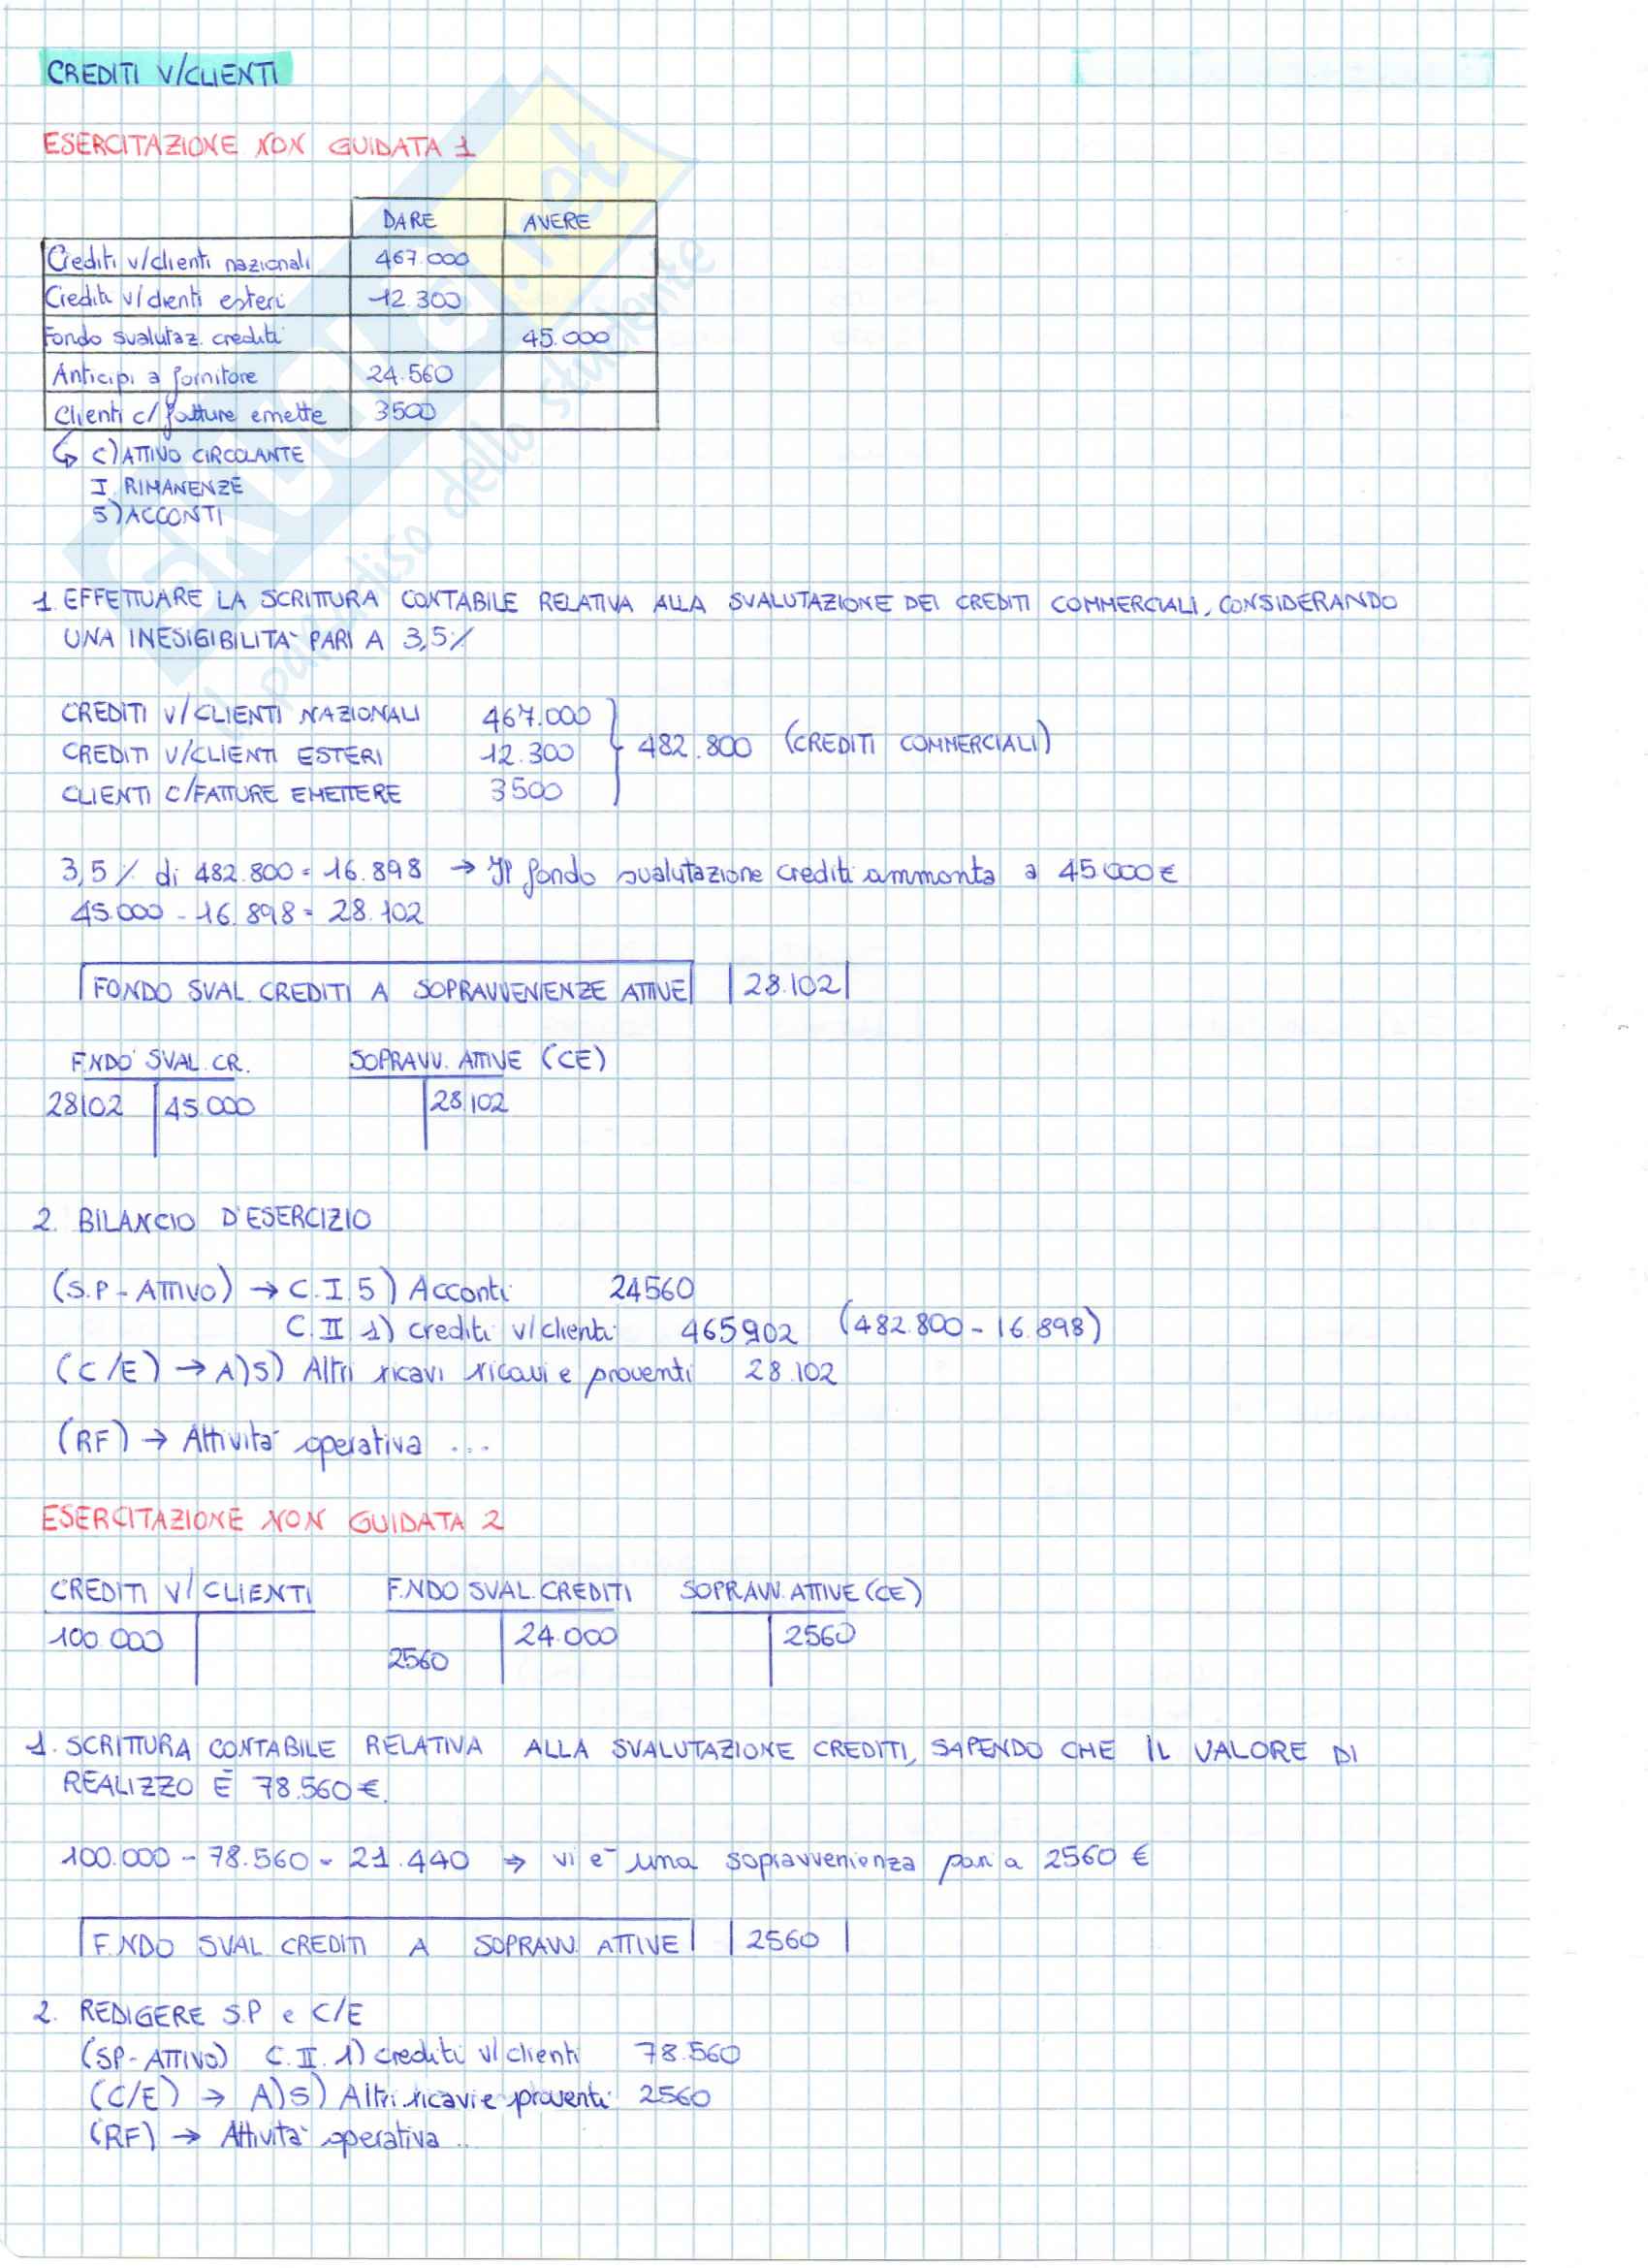 CREDITI V/CLIENTI
ESERCITAZIONE NON GUIDATA 1
DARE AVERE
Crediti v/clienti nazionali 467.000
Crediti v/clienti esteri 12.300
Fondo svalutaz. crediti 45.000
Anticipi a fornitore 24.560
Clienti c/fatture emette 3500
↳ C) ATTIVO CIRCOLANTE
I. RIMANENZE
5) ACCONTI
1. EFFETTUARE LA SCRITTURA CONTABILE RELATIVA ALLA SVALUTAZIONE DEI CREDITI COMMERCIALI, CONSIDERANDO
UNA INESIGIBILITA` PARI A 3,5%
CREDITI V/CLIENTI NAZIONALI 467.000
CREDITI V/CLIENTI ESTERI 12.300 482.800 (CREDITI COMMERCIALI)
CLIENTI C/FATTURE EMETTERE 3500
3,5% di 482.800 = 16.898 → Il fondo svalutazione crediti ammonta a 45.000€
45.000 - 16.898 = 28.102
FONDO SVAL. CREDITI A SOPRAVVENIENZE ATTIVE 28.102
F.NDO SVAL. CR. SOPRAVV. ATTIVE (CE)
28102 45.000 28.102
2. BILANCIO D'ESERCIZIO
(S.P - ATTIVO) → C.I.5) Acconti 24560
C.II.1) crediti v/clienti 465902 (482.800 - 16.898)
(C/E) → A)5) Altri ricavi ricavi e proventi 28.102
(RF) → Attivita` operativa ...
ESERCITAZIONE NON GUIDATA 2
CREDITI V/CLIENTI F.NDO SVAL. CREDITI SOPRAVV. ATTIVE (CE)
100.000 24.000 2560
2560
1. SCRITTURA CONTABILE RELATIVA ALLA SVALUTAZIONE CREDITI, SAPENDO CHE IL VALORE DI
REALIZZO È 78.560€.
100.000 - 78.560 = 21.440 → vi e` una sopravvenienza pari a 2560 €
F.NDO SVAL. CREDITI A SOPRAVV. ATTIVE 2560
2. REDIGERE S.P e C/E
(SP-ATTIVO) C.II.1) crediti v/clienti 78.560
(C/E) → A)5) Altri ricavi e proventi 2560
(RF) → Attivita` operativa ...
skuola.net
il paradiso dello studente